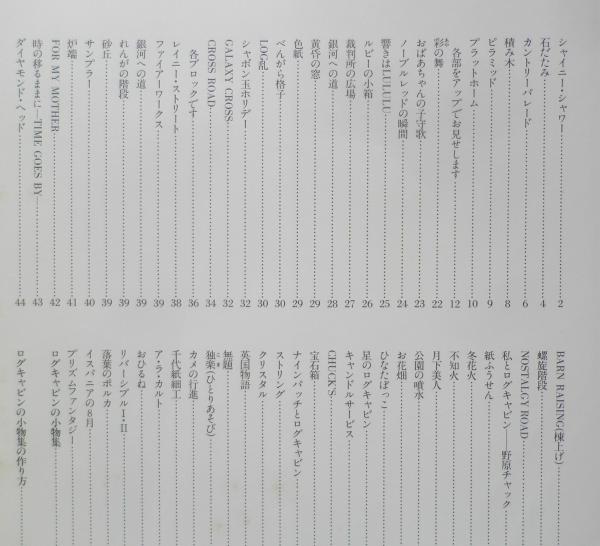 シャイニー・シャワー……2
石だたみ……4
カントリーパレード……6
積み木……8
ピラミッド……9
プラットホーム……10
各部をアップでお見せします……12
彩の舞……22
おばあちゃんの子守歌……23
ノーブルレッドの瞬間……24
響きはLULULU……25
ルビーの小箱……26
裁判所の広場……27
銀河への道……28
黄昏の窓……29
色紙……29
べんがら格子……30
LOG乱……30
シャボン玉ホリデー……32
GALAXY CROSS……32
CROSS ROAD……34
各ブロックです……36
レイニー・ストリート……38
ファイアーワークス……39
銀河への道……39
れんがの階段……39
砂丘……39
サンプラー……40
炉端……41
FOR MY MOTHER……42
時の移るままに―TIME GOES BY……43
ダイヤモンド・ヘッド……44
BARN RAISING(棟上げ)
螺旋階段
NOSTALGY ROAD
私とログキャビン――野原チャック
紙ふうせん
冬花火
不知火
月下美人
公園の噴水
お花畑
ひなたぼっこ
星のログキャビン
キャンドルサービス
CHUCK'S
宝石箱
ナインパッチとログキャビン
ストリング
クリスタル
英国物語
無題
独楽(ひとりあそび)
カメの行進
千代紙細工
ア・ラ・カルト
おひるね
リバーシブルⅠ・Ⅱ
落葉のポルカ
イスパニアの8月
プリズムファンタジー
ログキャビンの小物集
ログキャビンの小物集の作り方